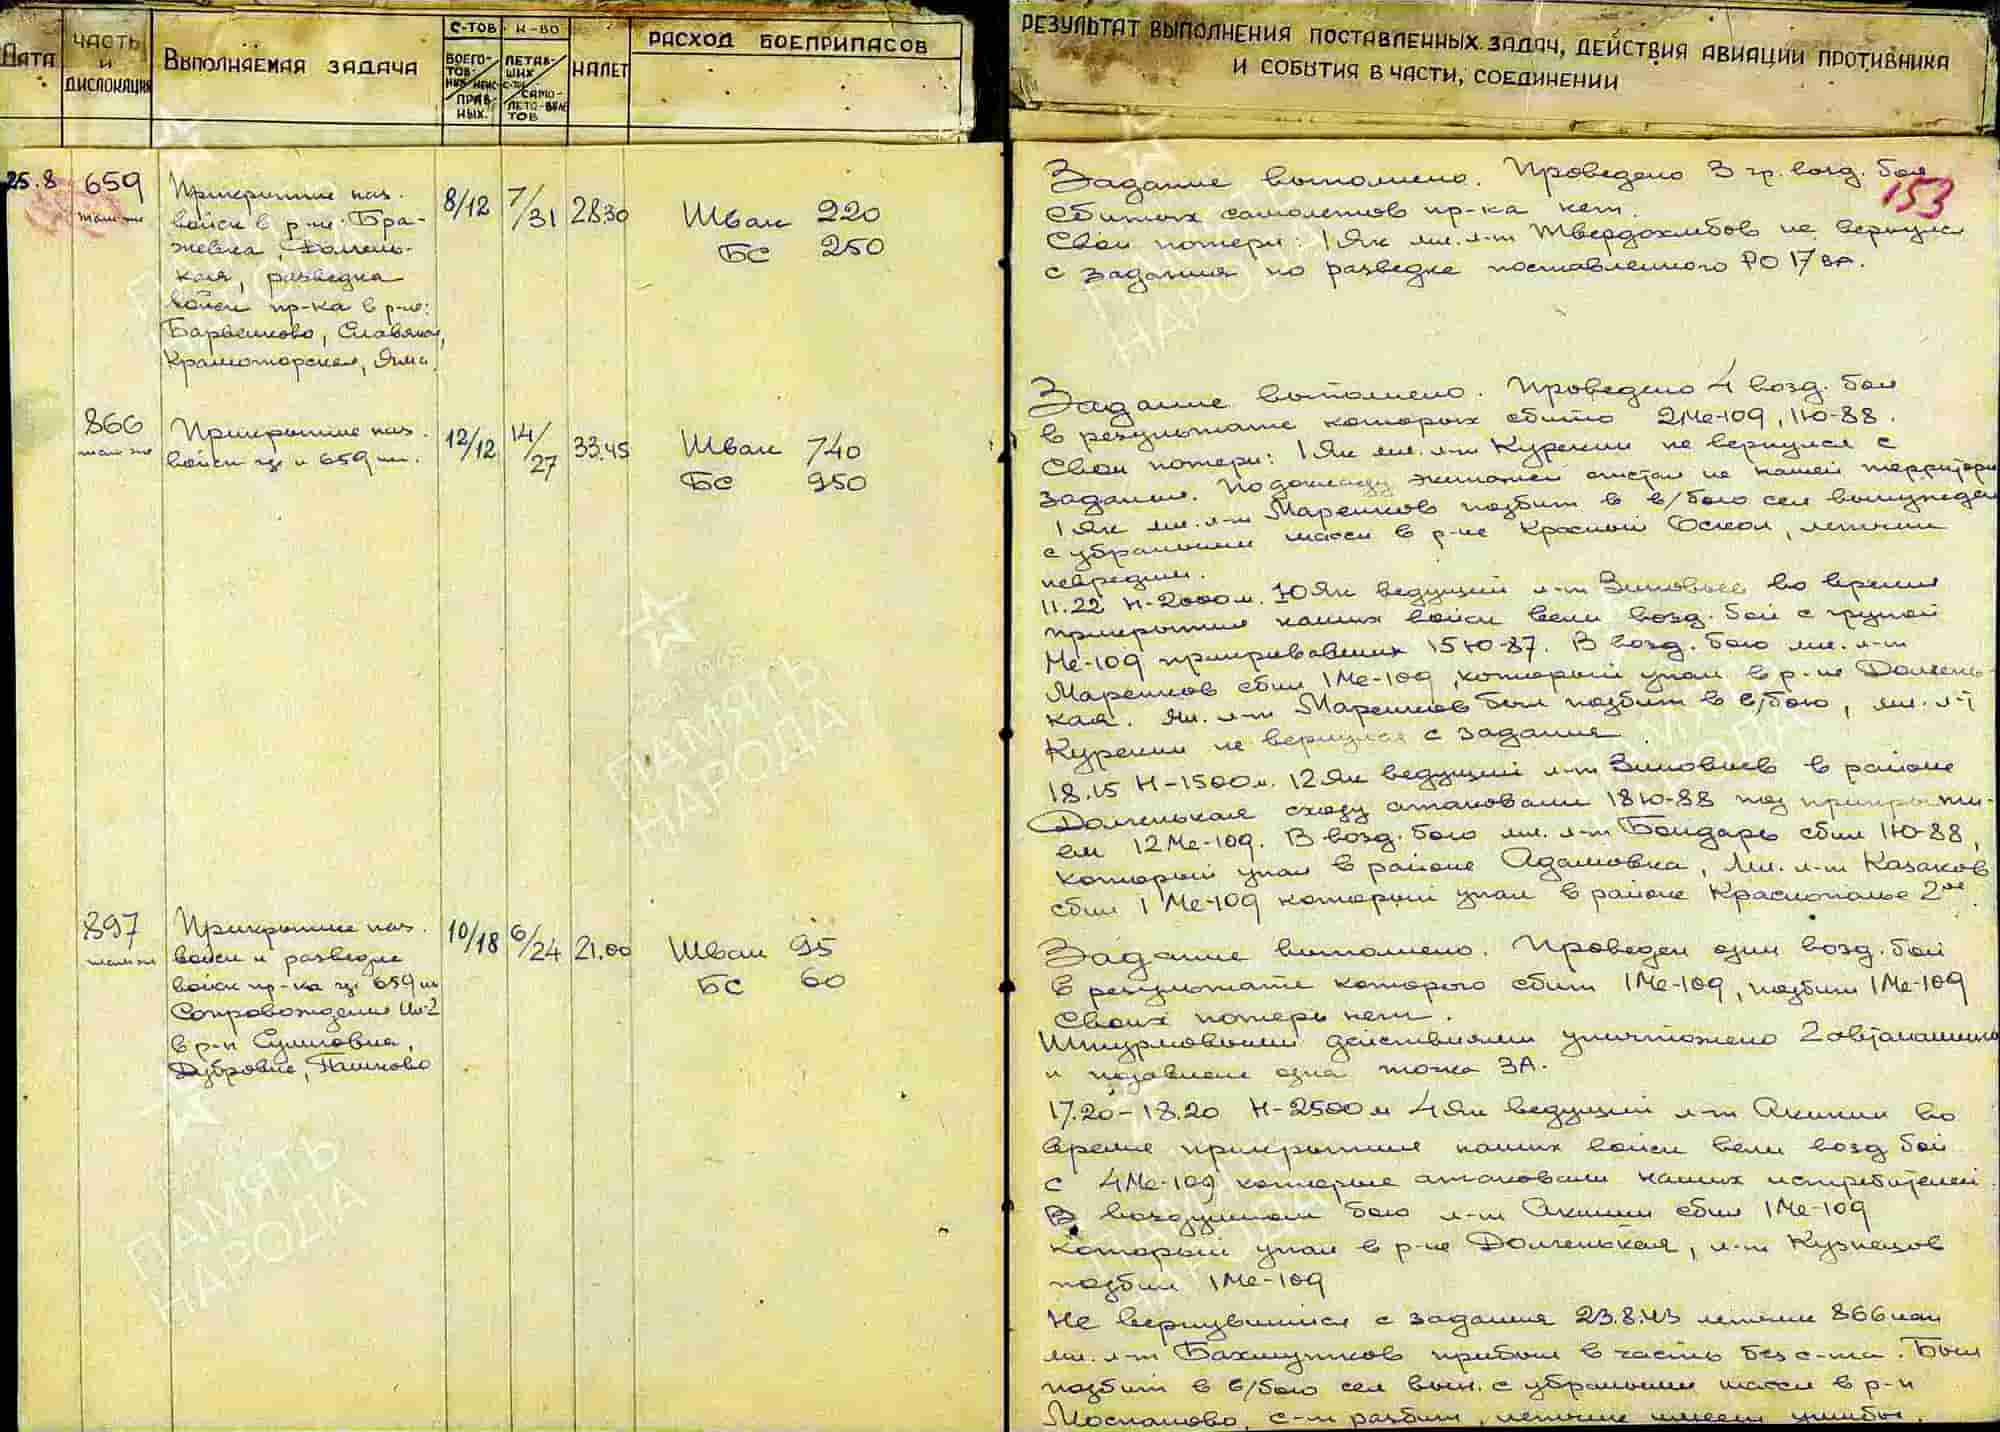 Дата
ЧАСТЬ
И
ДИСЛОКАЦИЯ
ВЫПОЛНЯЕМАЯ ЗАДАЧА
С-ТОВ
К-ВО
НАЛЕТ
РАСХОД БОЕПРИПАСОВ
РЕЗУЛЬТАТ ВЫПОЛНЕНИЯ ПОСТАВЛЕННЫХ ЗАДАЧ, ДЕЙСТВИЯ АВИАЦИИ ПРОТИВНИКА
И СОБЫТИЯ В ЧАСТИ, СОЕДИНЕНИИ
153
25.8
659
там же
Прикрытие наз.
войск в р-не: Бра-
жевка, Долгень-
кая, разведка
войск пр-ка в р-не:
Барвенково, Славянск,
Краматорская, Яма.
8/12
7/31
28.30
Швак 220
БС 250
Задание выполнено. Проведено 3 гр. возд. боя
Сбитых самолетов пр-ка нет.
Свои потери: 1 Як мл. л-т Твердохлебов не вернулся
с задания по разведке поставленного РО 17 ВА.
866
там же
Прикрытие наз.
войск где и 659 ип.
12/12
14/27
33.45
Швак 740
БС 950
Задание выполнено. Проведено 4 возд. боя
в результате которых сбито 2 Ме-109, 1 Ю-88.
Свои потери: 1 Як мл. л-т Курекин не вернулся с
задания. По докладу экипажей отстал на нашей территори
1 Як мл. л-т Маренков подбит в в/бою сел вынужден
с убранными шасси в р-не Красный Оскол, летчик
невредим.
11.22 Н-2000 м. 10 Як ведущий л-т Зиновьев во время
прикрытия наших войск вели возд. бой с групой
Ме-109 прикрывавших 15 Ю-87. В возд. бою мл. л-т
Маренков сбил 1 Ме-109, который упал в р-не Долгень-
кая. Мл. л-т Маренков был подбит в в/бою, мл. л-т
Курекин не вернулся с задания
18.15 Н-1500 м. 12 Як ведущий л-т Зиновьев в районе
Долгенькая сходу атаковали 18 Ю-88 под прикрыти-
ем 12 Ме-109. В возд. бою мл. л-т Бондарь сбил 1 Ю-88,
который упал в районе Адамовка, Мл. л-т Казаков
сбил 1 Ме-109 который упал в районе Краснополье 2ое.
897
там же
Прикрытие наз.
войск и разведка
войск пр-ка где 659 ип
Сопровождение Ил-2
в р-н Сулиговка,
Дубровка, Пашково
10/18
6/24
21.00
Швак 95
БС 60
Задание выполнено. Проведен один возд. бой
в результате которого сбит 1 Ме-109, подбит 1 Ме-109
Своих потерь нет.
Штурмовыми действиями уничтожено 2 автомашины
и подавлена одна точка ЗА.
17.20-18.20 Н-2500 м 4 Як ведущий л-т Акинин во
время прикрытия наших войск вели возд бой
с 4 Ме-109 которые атаковали наших истребителей.
В воздушном бою л-т Акинин сбил 1 Ме-109
который упал в р-не Долгенькая, л-т Кузнецов
подбил 1 Ме-109
Не вернувшийся с задания 23.8.43 летчик 866 иап
мл. л-т Бахмутков прибыл в часть без с-та. Был
подбит в в/бою сел вын. с убранными шасси в р-н
Моспаново, с-т разбит, летчик имеет ушибы.
ПАМЯТЬ
НАРОДА